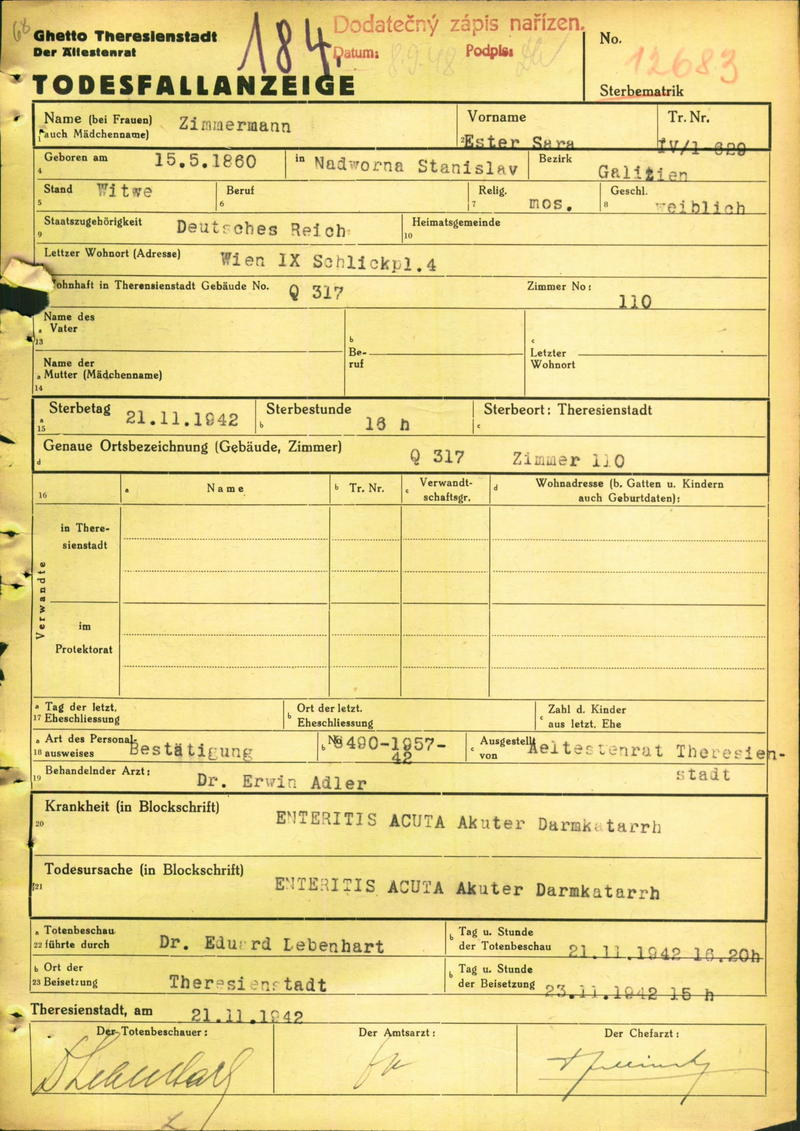 68
Ghetto Theresienstadt
Der Ältestenrat
184.
Dodatečný zápis nařízen.
Datum: 8.9.48 Podpis:
No.
12683
Sterbematrik
TODESFALLANZEIGE
Name (bei Frauen) auch Mädchenname) Zimmermann
Vorname Ester Sara
Tr. Nr. IV/1-620
Geboren am 15.5.1860 in Nadworna Stanislav Bezirk Galizien
Stand Witwe Beruf Relig. mos. Geschl. weiblich
Staatszugehörigkeit Deutsches Reich Heimatsgemeinde
Lettzer Wohnort (Adresse) Wien IX Schlickpl.4
Wohnhaft in Therensienstadt Gebäude No. Q 317 Zimmer No: 110
Name des Vater
Be-ruf
Letzter Wohnort
Name der Mutter (Mädchenname)
Sterbetag 21.11.1942 Sterbestunde 16 h Sterbeort: Theresienstadt
Genaue Ortsbezeichnung (Gebäude, Zimmer) Q 317 Zimmer 110
16 a Name b Tr. Nr. c Verwandt-schaftsgr. d Wohnadresse (b. Gatten u. Kindern auch Geburtdaten):
Verwandte
in There-sienstadt
im Protektorat
a Tag der letzt. 17 Eheschliessung b Ort der letzt. Eheschliessung c Zahl d. Kinder aus letzt. Ehe
a Art des Personal- 18 ausweises Bestätigung b No 490-1957-42 c Ausgestellt von Aeltestenrat Theresien-stadt
19 Behandelnder Arzt: Dr. Erwin Adler
Krankheit (in Blockschrift)
20 ENTERITIS ACUTA Akuter Darmkatarrh
Todesursache (in Blockschrift)
21 ENTERITIS ACUTA Akuter Darmkatarrh
a Totenbeschau 22 führte durch Dr. Eduard Lebenhart b Tag u. Stunde der Totenbeschau 21.11.1942 16.20h
b Ort der 23 Beisetzung Theresienstadt b Tag u. Stunde der Beisetzung 23.11.1942 15 h
Theresienstadt, am 21.11.1942
Der Totenbeschauer: Der Amtsarzt: Der Chefarzt: